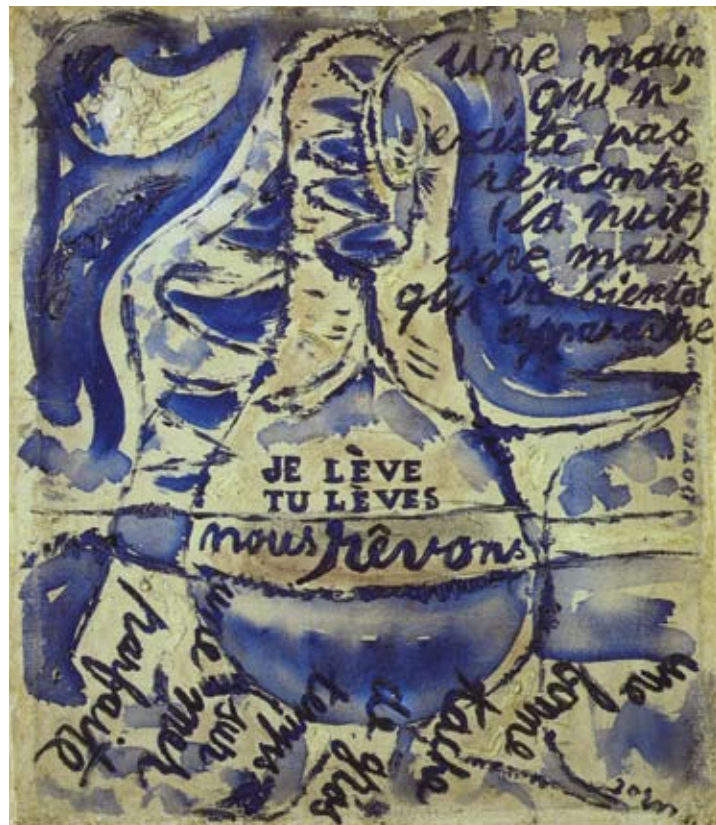 une main
qui n'
existe pas
rencontre
(la nuit)
une main
qui va bientôt
apparaître
JE LÈVE
TU LÈVES
nous rêvons
une
bonne
kacha
de gros
temps
sur
une mer
parfaite
jorn